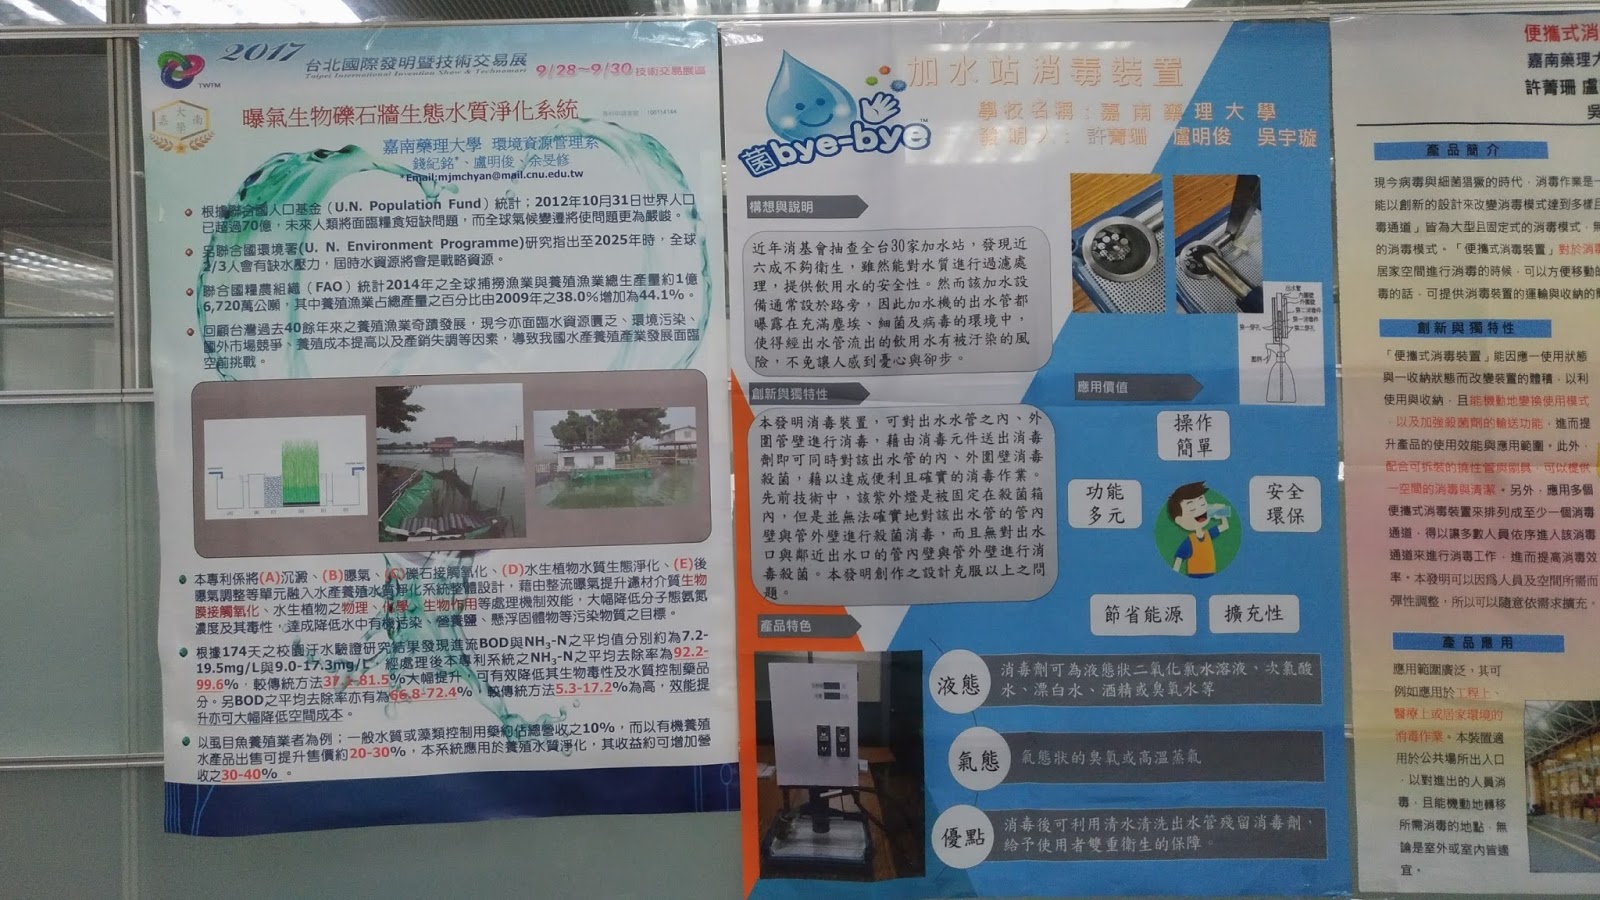 2017 台北國際發明暨技術交易展
Taipei International Invention Show & Technomart
9/28~9/30 技術交易展區
TWTM
曝氣生物礫石牆生態水質淨化系統
嘉南藥理大學 環境資源管理系
錢紀銘*、盧明俊、余旻修
*Email:mjmchyan@mail.cnu.edu.tw
根據聯合國人口基金（U.N. Population Fund）統計；2012年10月31日世界人口
已超過70億，未來人類將面臨糧食短缺問題，而全球氣候變遷將使問題更為嚴峻。
另聯合國環境署(U. N. Environment Programme)研究指出至2025年時，全球
2/3人會有缺水壓力，屆時水資源將會是戰略資源。
聯合國糧農組織（FAO）統計2014年之全球捕撈漁業與養殖漁業總生產量約1億
6,720萬公噸，其中養殖漁業占總產量之百分比由2009年之38.0%增加為44.1%。
回顧台灣過去40餘年來之養殖漁業奇蹟發展，現今亦面臨水資源匱乏、環境污染、
國外市場競爭、養殖成本提高以及產銷失調等因素，導致我國水產養殖產業發展面臨
空前挑戰。
本專利係將(A)沉澱、(B)曝氣、(C)礫石接觸氧化、(D)水生植物水質生態淨化、(E)後
曝氣調整等單元融入水產養殖水質淨化系統整體設計，藉由整流曝氣提升濾材介質生物
膜接觸氧化、水生植物之物理、化學、生物作用等處理機制效能，大幅降低分子態氨氮
濃度及其毒性，達成降低水中有機污染、營養鹽、懸浮固體物等污染物質之目標。
根據174天之校園汙水驗證研究結果發現進流BOD與NH3-N之平均值分別約為7.2-
19.5mg/L與9.0-17.3mg/L，經處理後本專利系統之NH3-N之平均去除率為92.2-
99.6%，較傳統方法37.1-81.5%大幅提升，可有效降低其生物毒性及水質控制藥品
分。另BOD之平均去除率亦有為66.8-72.4%，較傳統方法5.3-17.2%為高，效能提
升亦可大幅降低空間成本。
以虱目魚養殖業者為例；一般水質或藻類控制用藥約佔總營收之10%，而以有機養殖
水產品出售可提升售價約20-30%，本系統應用於養殖水質淨化，其收益約可增加營
收之30-40% 。
菌bye-bye™
加水站消毒裝置
學校名稱：嘉南藥理大學
發明人：許菁珊 盧明俊 吳宇璇
構想與說明
近年消基會抽查全台30家加水站，發現近
六成不夠衛生，雖然能對水質進行過濾處
理，提供飲用水的安全性。然而該加水設
備通常設於路旁，因此加水機的出水管都
曝露在充滿塵埃、細菌及病毒的環境中，
使得經出水管流出的飲用水有被汙染的風
險，不免讓人感到憂心與卻步。
創新與獨特性
本發明消毒裝置，可對出水水管之內、外
圍管壁進行消毒，藉由消毒元件送出消毒
劑即可同時對該出水管的內、外圍壁消毒
殺菌，藉以達成便利且確實的消毒作業。
先前技術中，該紫外燈是被固定在殺菌箱
內，但是並無法確實地對該出水管的管內
壁與管外壁進行殺菌消毒，而且無對出水
口與鄰近出水口的管內壁與管外壁進行消
毒殺菌。本發明創作之設計克服以上之問
題。
產品特色
出水管
應用價值
操作
簡單
功能
多元
安全
環保
節省能源
擴充性
液態
消毒劑可為液態狀二氧化氯水溶液、次氯酸
水、漂白水、酒精或臭氧水等
氣態
氣態狀的臭氧或高溫蒸氣
優點
消毒後可利用清水清洗出水管殘留消毒劑，
給予使用者雙重衛生的保障。
便攜式消
嘉南藥理大
許菁珊 盧
吳
產品簡介
現今病毒與細菌猖獗的時代，消毒作業是一
能以創新的設計來改變消毒模式達到多樣且
毒通道」皆為大型且固定式的消毒模式，無
的消毒模式。「便攜式消毒裝置」對於消毒
居家空間進行消毒的時候，可以方便移動的
毒的話，可提供消毒裝置的運輸與收納的簡
創新與獨特性
「便攜式消毒裝置」能因應一使用狀態
與一收納狀態而改變裝置的體積，以利
使用與收納，且能機動地變換使用模式
，以及加強殺菌劑的輸送功能，進而提
升產品的使用效能與應用範圍。此外，
配合可拆裝的撓性管與刷具，可以提供
一空間的消毒與清潔。另外，應用多個
便攜式消毒裝置來排列成至少一個消毒
通道，得以讓多數人員依序進入該消毒
通道來進行消毒工作，進而提高消毒效
率。本發明可以因為人員及空間所需而
彈性調整，所以可以隨意依需求擴充。
產品應用
應用範圍廣泛，其可
例如應用於工程上、
醫療上或居家環境的
消毒作業。本裝置適
用於公共場所出入口
，以對進出的人員消
毒，且能機動地轉移
所需消毒的地點，無
論是室外或室內皆適
宜。